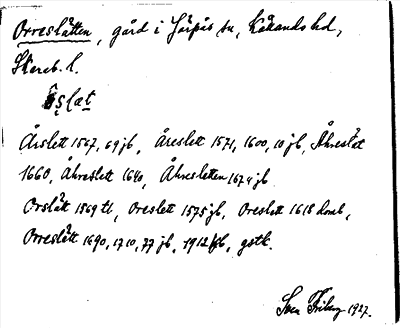 Orreslätten, gård i Järpås sn, Kållands hd,
Skarab. l.
Årslett 1567, 69 jb, Åreslett 1571, 1600, 10 jb, Åhreslät
1660, Åhreslett 1640, Åhresletten 1674 jb
Orslätt 1569 tl, Oreslett 1575 jb, Oreslett 1618 domb,
Orreslätt 1690, 1710, 77 jb, 1912 jb, gstk.
Sven Friberg 1927.